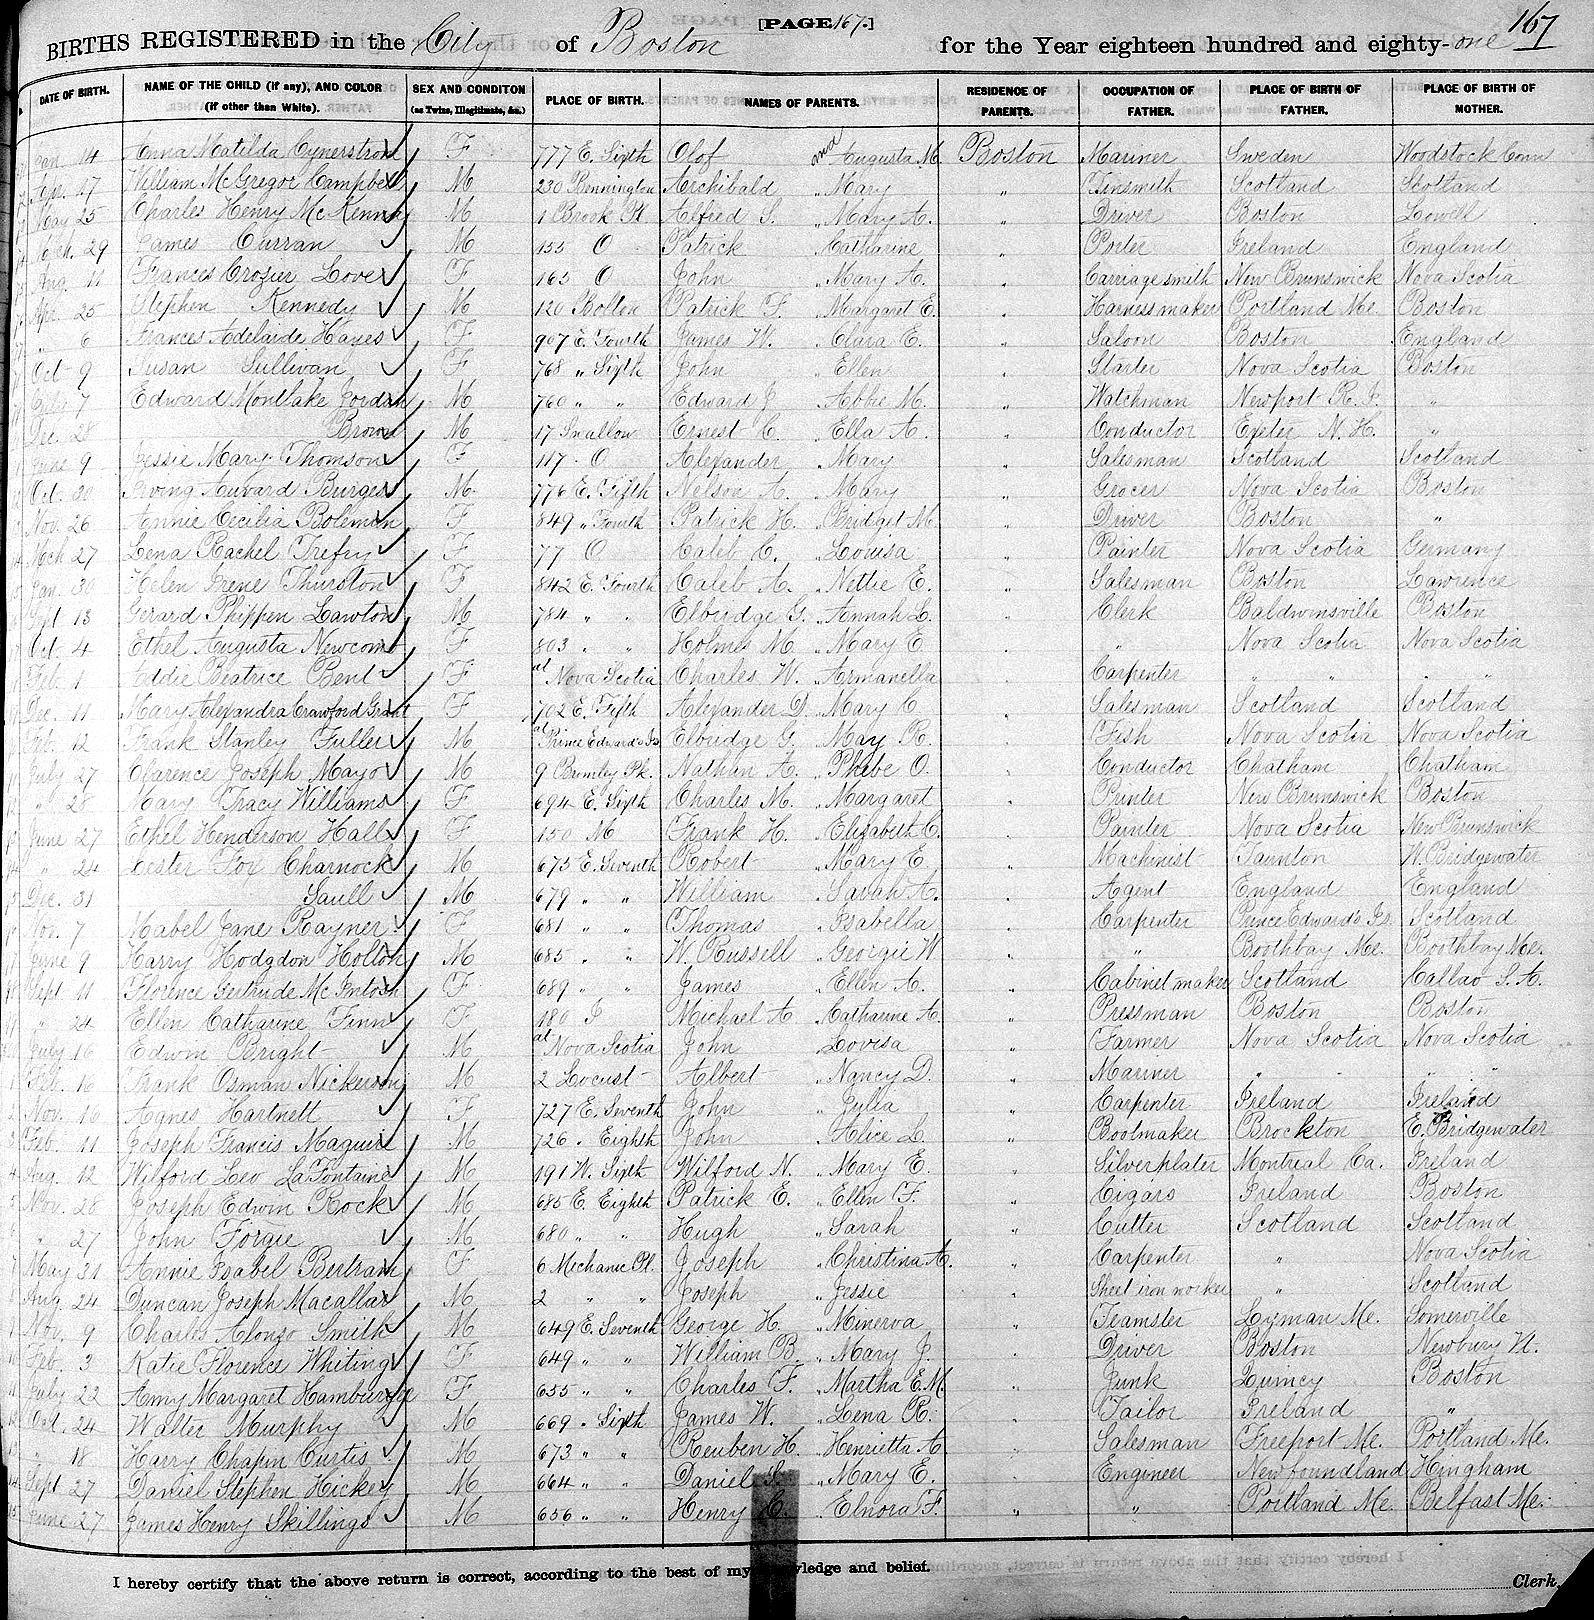 [PAGE 167.]
167
BIRTHS REGISTERED in the City of Boston for the Year eighteen hundred and eighty-one
DATE OF BIRTH. NAME OF THE CHILD (if any), AND COLOR (if other than White). SEX AND CONDITON (as Twins, Illegitimate, &c.) PLACE OF BIRTH. NAMES OF PARENTS. RESIDENCE OF PARENTS. OCCUPATION OF FATHER. PLACE OF BIRTH OF FATHER. PLACE OF BIRTH OF MOTHER.
Jan. 14 Anna Matilda Cynerstrom F 777 E. Sixth Olof and Augusta M. Boston Mariner Sweden Woodstock Conn
Apr. 17 William McGregor Campbell M 230 Bennington Archibald " Mary " Tinsmith Scotland Scotland
May 25 Charles Henry McKenna M 1 Brook Pl. Alfred S. " Mary A. " Driver Boston Lowell
Mch. 29 James Curran M 155 O Patrick " Catharine " Porter Ireland England
Aug. 11 Frances Crozier Love F 165 O John " Mary A. " Carriagesmith New Brunswick Nova Scotia
Apr. 25 Stephen Kennedy M 120 Bolton Patrick F. " Margaret E. " Harnessmaker Portland Me. Boston
" 6 Frances Adelaide Hayes F 907 E. Fourth James W. " Clara E. " Saloon Boston England
Oct 9 Susan Sullivan F 768 " Sixth John " Ellen " Starter Nova Scotia Boston
7 Edward Jordan M 760 " " Edward J. " Abbie M. " Watchman Newport R. I. "
Dec. 28 Brown M 17 Swallow Ernest C. " Ella A. " Conductor Exeter N. H. "
June 9 Jessie Mary Thomson F 117 O Alexander " Mary " Salesman Scotland Scotland
Oct. 20 Irving Burges M 776 E. Fifth Nelson A. " Mary " Grocer Nova Scotia Boston
Nov. 26 Annie Cecilia Boleman F 849 " Fourth Patrick H. " Bridget M. " Driver Boston "
Mch 27 Lena Rachel Trefry F 77 O Caleb C. " Louisa " Painter Nova Scotia Germany
Jan. 30 Helen Irene Thurston F 842 E. Fourth Caleb A. " Nettie E. " Salesman Boston Lawrence
Sept 13 Gerard Phippen Lawton M 784 " " Elbridge G. " Annah L. " Clerk Baldwinsville Boston
Oct. 4 Ethel Augusta Newcomb F 803 " " Holmes M. " Mary E. " " Nova Scotia Nova Scotia
Feb. 1 Addie Beatrice Bent F at Nova Scotia Charles W. " Armanella " Carpenter " "
Dec. 11 Mary Alexandra Crawford Grant F 702 E. Fifth Alexander D. " Mary C " Salesman Scotland Scotland
Feb. 12 Frank Stanley Fuller M at Prince Edward's Is Elbridge G. " Mary R. " Fish Nova Scotia Nova Scotia
July 27 Clarence Joseph Mayo M 9 Bromley Pk. Nathan A. " Phebe O. " Conductor Chatham Chatham
" 28 Mary Tracy Williams F 694 E. Sixth Charles M. " Margaret " Printer New Brunswick Boston
June 27 Ethel Henderson Hall F 150 M Frank H. " Elizabeth C. " Painter Nova Scotia New Brunswick
" 24 Lester Fox Charnock M 675 E. Seventh Robert " Mary E. " Machinist Taunton W. Bridgewater
Dec. 31 Saull M 679 " " William " Sarah A. " Agent England England
Nov. 7 Mabel Jane Rayner F 681 " " Thomas " Isabella " Carpenter Prince Edward's Is. Scotland
June 9 Harry Hodgdon Holton M 685 " " W. Russell " Georgie W " " Boothbay Me. Boothbay Me.
Sept 11 Florence Gertrude McIntosh F 689 " " James " Ellen A. " Cabinet maker Scotland Callao S. A.
" 24 Ellen Catharine Finn F 180 I Michael A " Catharine A. " Pressman Boston Boston
July 16 Edwin Bright M at Nova Scotia John " Lovisa " Farmer Nova Scotia Nova Scotia
Feb. 16 Frank Osman Nickerson M 2 Locust Albert " Nancy D. " Mariner " "
Nov. 16 Agnes Hartnett F 727 E. Seventh John " Julia " Carpenter Ireland Ireland
Feb. 11 Joseph Francis Maguire M 726 " Eighth John " Alice L. " Bootmaker Brockton E. Bridgewater
Aug. 12 Wilford Leo LaFontaine M 191 W. Sixth Wilford N. " Mary E. " Silverplater Montreal Ca. Ireland
Nov. 28 Joseph Edwin Rock M 685 E. Eighth Patrick E. " Ellen F. " Cigars Ireland Boston
" 27 John Forgie M 680 " " Hugh " Sarah " Cutter Scotland Scotland
May 31 Annie Isabel Bertram F 6 Mechanic Pl. Joseph " Christina A. " Carpenter " Nova Scotia
Aug. 24 Duncan Joseph Macallar M 2 " " Joseph " Jessie " Sheet iron worker " Scotland
Nov. 9 Charles Alonzo Smith M 649 E. Seventh George H. " Minerva " Teamster Lyman Me. Somerville
Feb. 3 Katie Florence Whiting F 649 " " William B. " Mary J. " Driver Boston Newbury N.
July 22 Amy Margaret Hamburge F 655 " " Charles F. " Martha E.M. " Junk Quincy Boston
Oct. 24 Walter Murphy M 669 " Sixth James W. " Lena R. " Tailor Ireland "
" 18 Harry Chapin Curtis M 673 " " Reuben H. " Henrietta A " Salesman Freeport Me. Portland Me.
Sept 27 Daniel Stephen Hickey M 664 " " Daniel S. " Mary E. " Engineer Newfoundland Hingham
June 27 James Henry Skillings M 656 " " Henry C. " Elnora F. " " Portland Me. Belfast Me.
I hereby certify that the above return is correct, according to the best of my knowledge and belief.
Clerk.